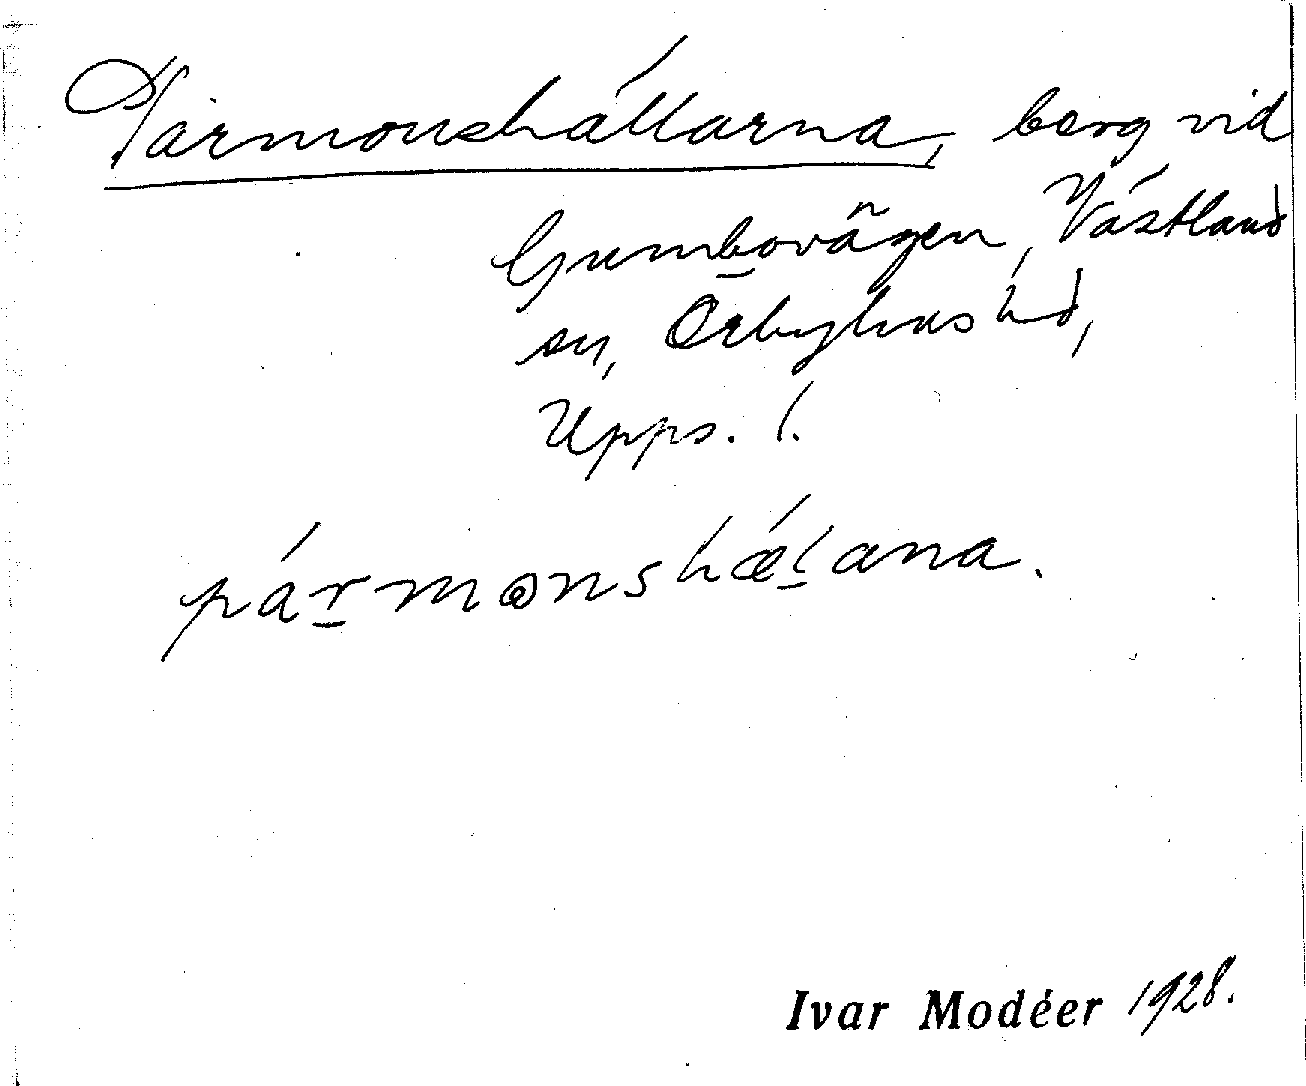 Parmonshällarna, berg vid
Gumbovägen, Västland
sn, Örbyhus hd,
Upps. l.
pármɷnshǽlana.
Ivar Modéer 1928.